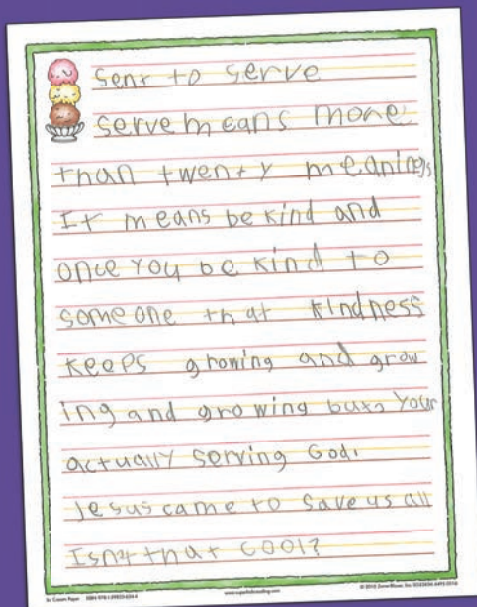 Sent to serve
serve means more
than twenty meanings
It means be kind and
once you be kind to
someone that kindness
keeps growing and grow
ing and growing your
actually serving God.
Jesus came to save us all
Isn't that cool?
Ice Cream Paper